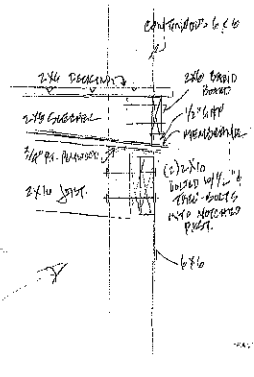 CONTINUOUS 6x6
2x6 DECKING
2x6 BAND
BOARD
2x8 SLEEPER
1/2" GAP
MEMBRANE
3/4" P.T. PLYWOOD
(2) 2x10
2x10 JOIST.
BOLTED W/ 1/2" φ
THRU-BOLTS
INTO NOTCHED
POST.
6x6